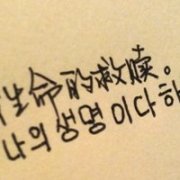 生命的救赎。
나의 생명이다하